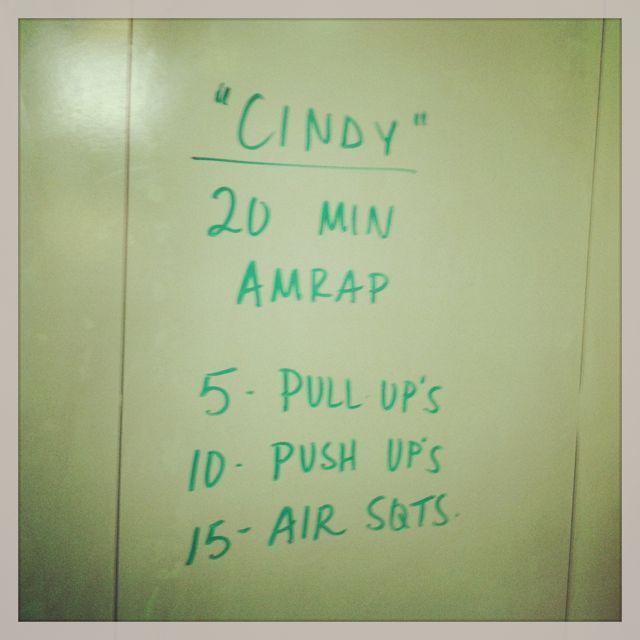 "CINDY"
20 MIN
AMRAP
5 - PULL UP'S
10 - PUSH UP'S
15 - AIR SQTS.